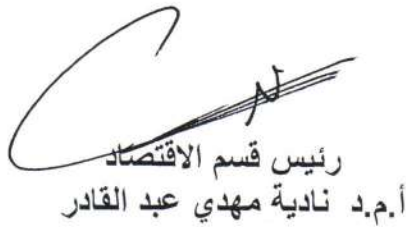 رئيس قسم الاقتصاد
أ.م.د نادية مهدي عبد القادر